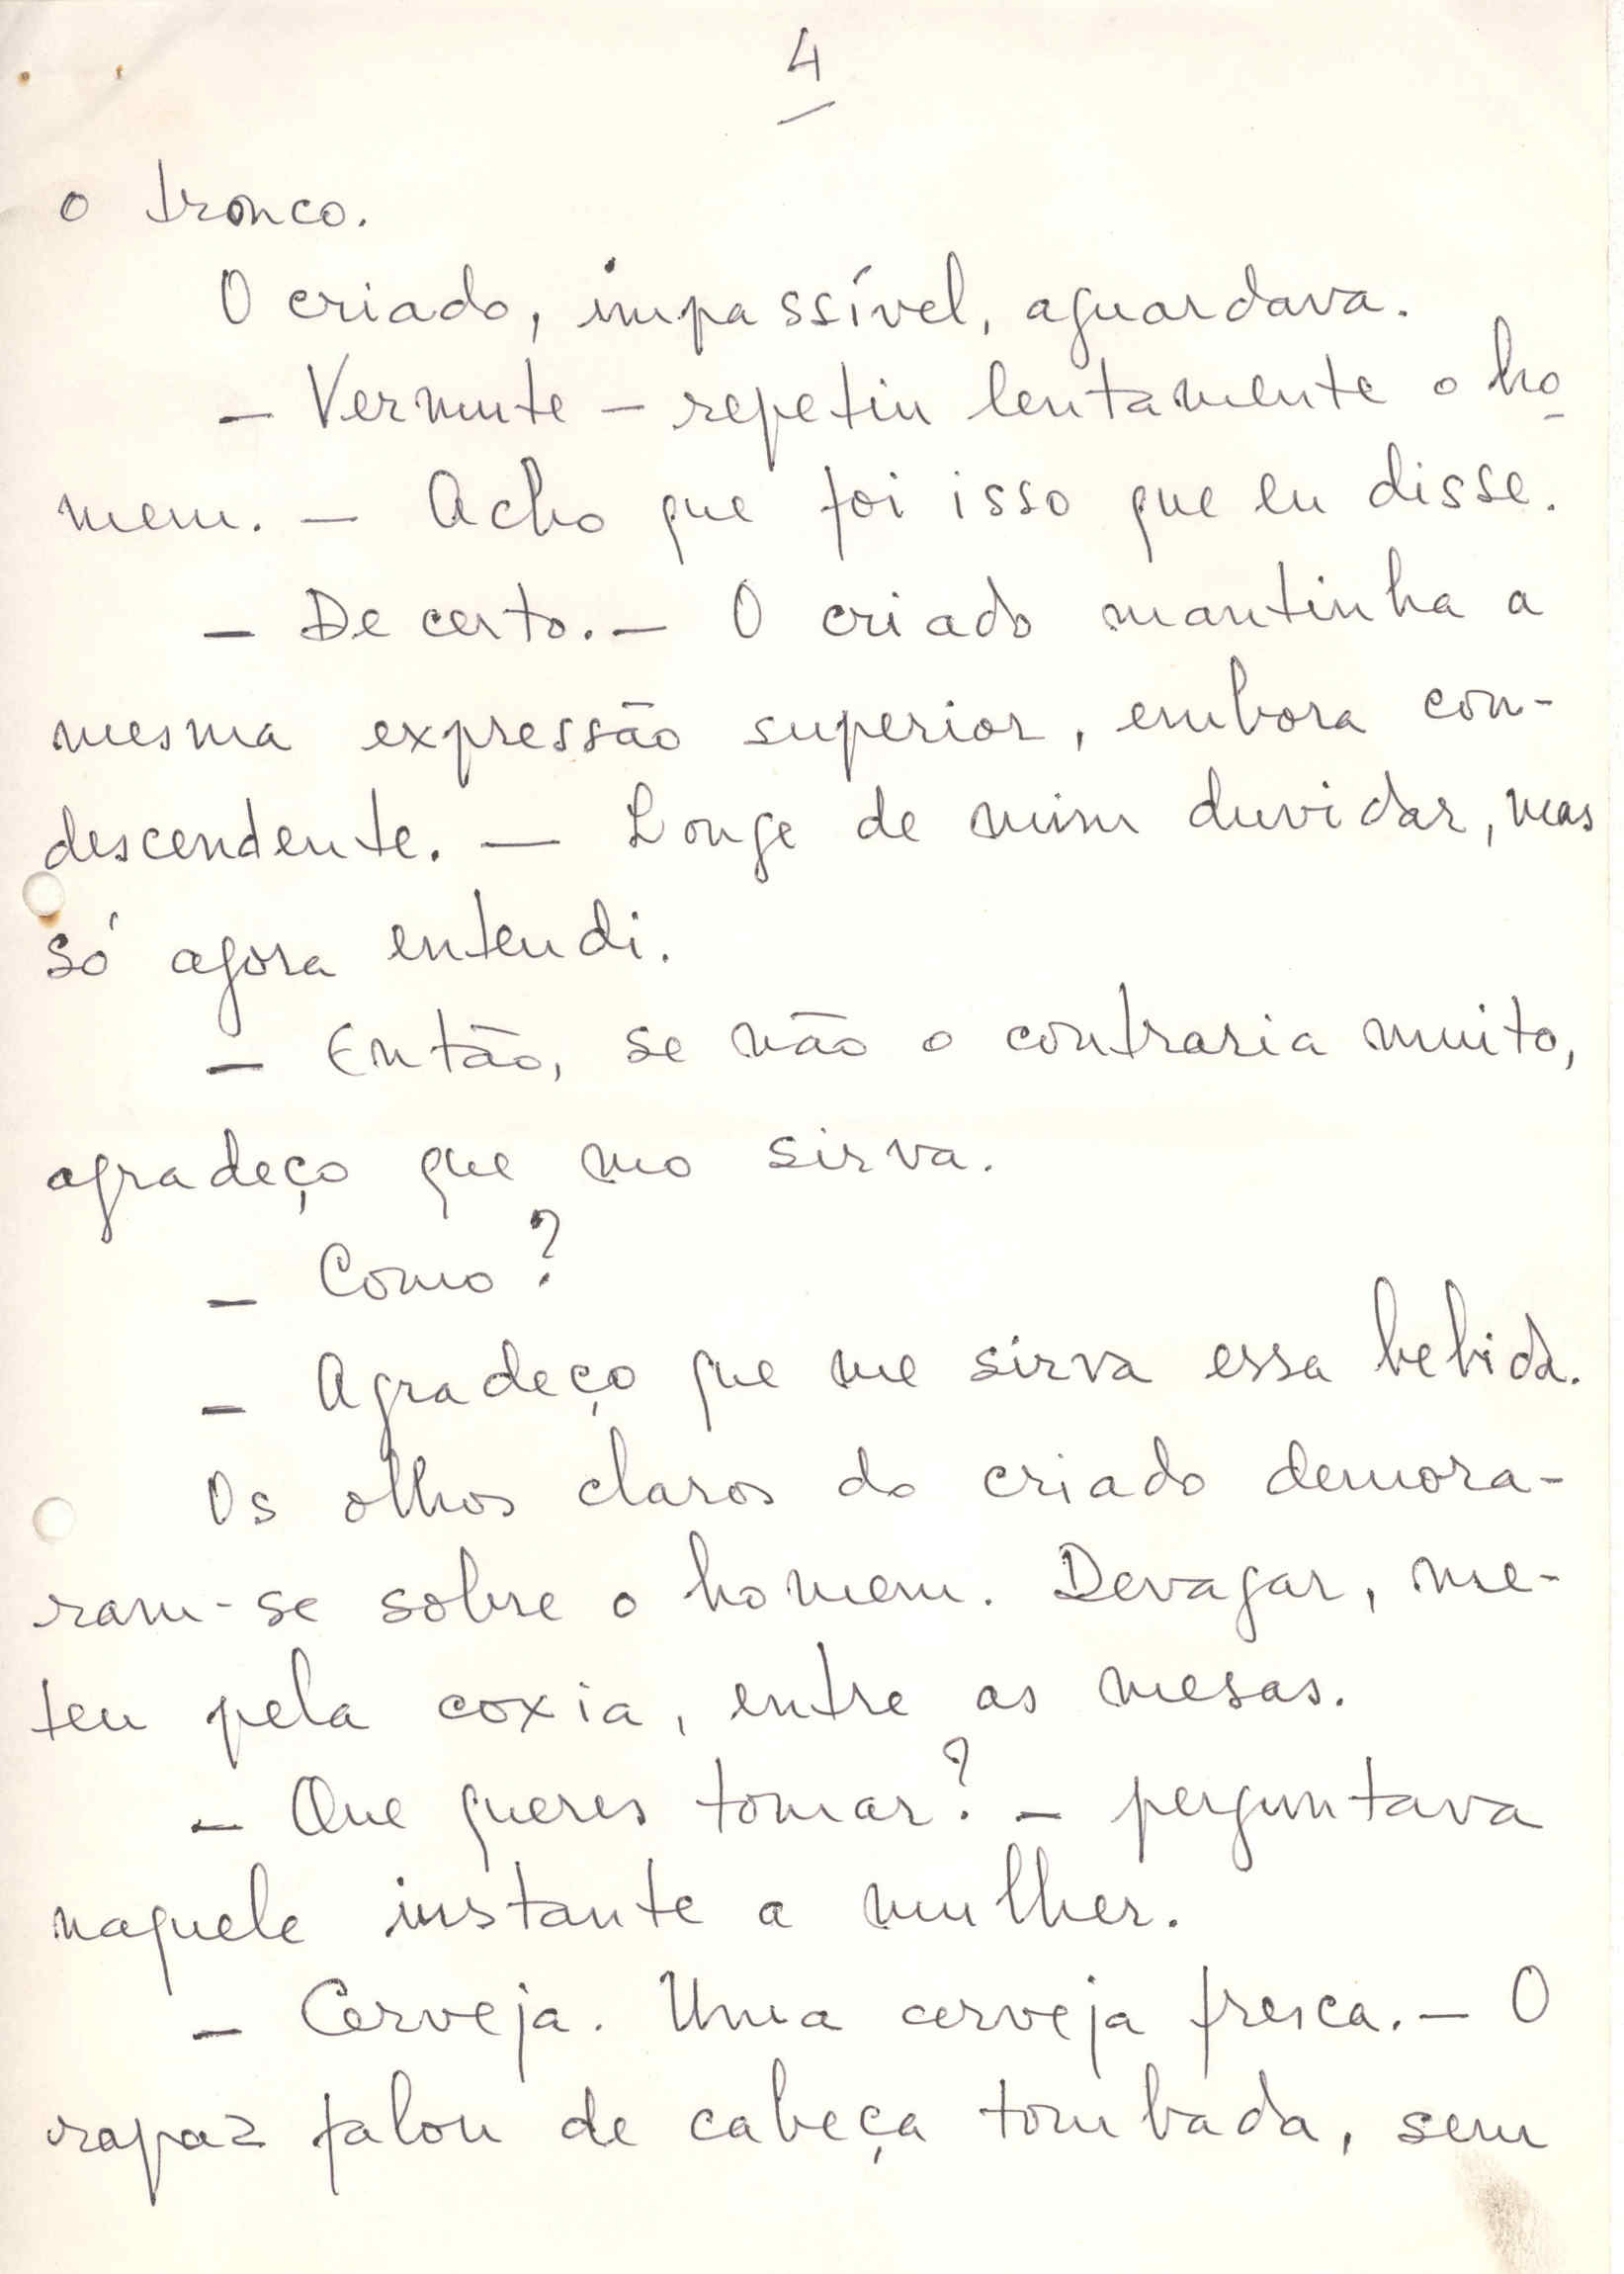 4
o tronco.
O criado, impassível, aguardava.
— Vermute — repetiu lentamente o ho-
mem. — Acho que foi isso que eu disse.
— De certo. — O criado mantinha a
mesma expressão superior, embora con-
descendente. — Longe de mim duvidar, mas
só agora entendi.
— Então, se não o contraria muito,
agradeço que mo sirva.
— Como?
— Agradeço que me sirva essa bebida.
Os olhos claros do criado demora-
ram-se sobre o homem. Devagar, me-
teu pela coxia, entre as mesas.
— Que queres tomar? — perguntava
naquele instante a mulher.
— Cerveja. Uma cerveja fresca. — O
rapaz falou de cabeça tombada, sem